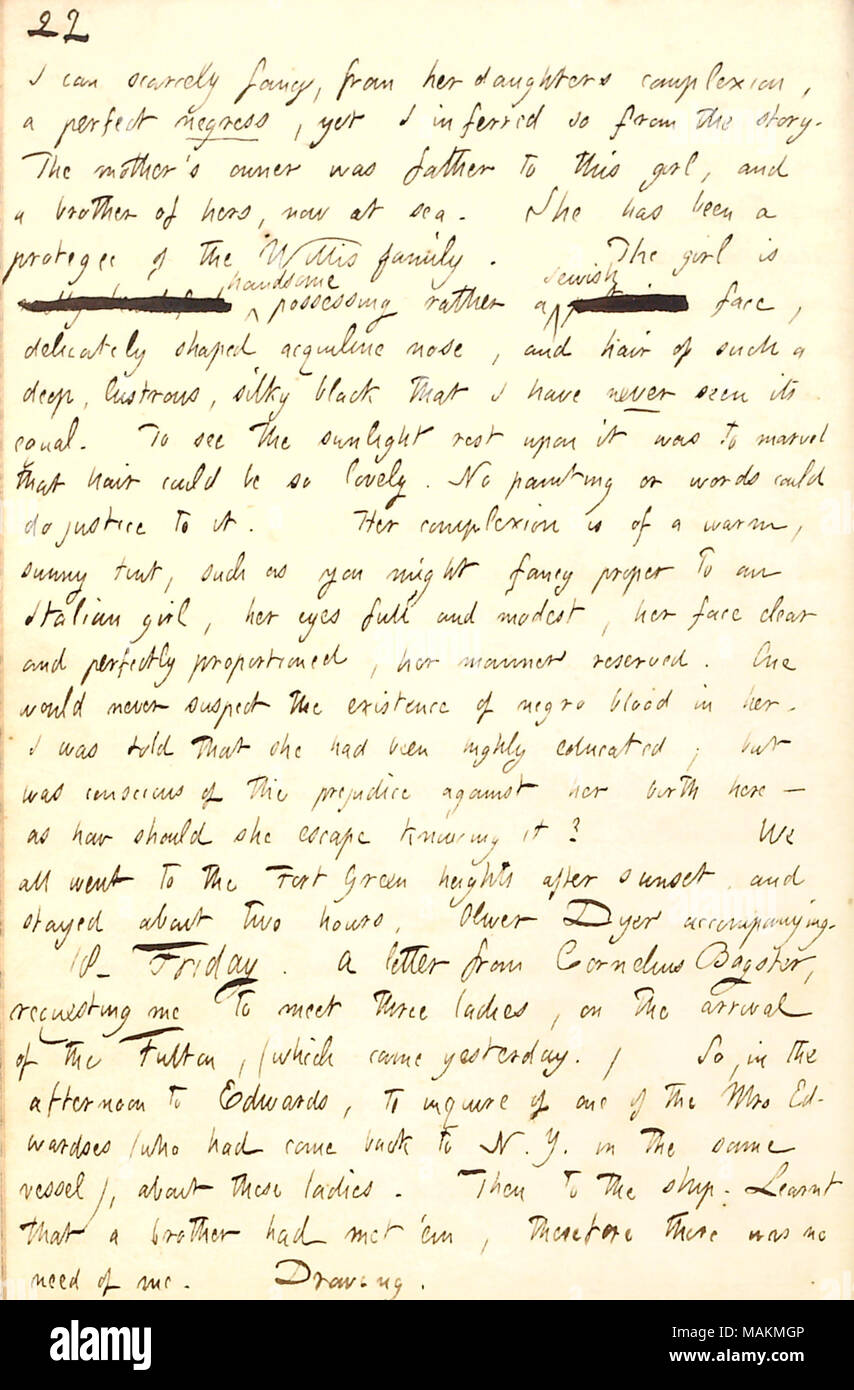 22
I can scarcely fancy, from her daughter's complexion,
a perfect negress, yet I inferred so from the story.
The mother's owner was father to this girl, and
a brother of hers, now at sea. She has been a
protegee of the Willis family. The girl is
handsome possessing rather a jewish face,
delicately shaped acquiline nose, and hair of such a
deep, lustrous, silky black that I have never seen its
equal. To see the sunlight rest upon it was to marvel
that hair could be so lovely. No painting or words could
do justice to it. Her complexion is of a warm,
sunny tint, such as you might fancy proper to an
Italian girl, her eyes full and modest, her face clear
and perfectly proportioned, her manner reserved. One
would never suspect the existence of negro blood in her.
I was told that she had been highly educated, but
was conscious of the prejudice against her birth here —
as how should she escape knowing it? We
all went to the Fort Green heights after sunset and
stayed about two hours, Oliver Dyer accompanying.
18_ Friday. A letter from Cornelius Bagster,
requesting me to meet three ladies, on the arrival
of the Fulton, (which came yesterday.) So, in the
afternoon to Edwards, to inquire of one of the Mrs Ed-
wardses (who had come back to N. Y. in the same
vessel), about these ladies. Then to the ship. Learnt
that a brother had met 'em, therefore there was no
need of me. Drawing.
alamy
Image ID: MAKMGP
www.alamy.com